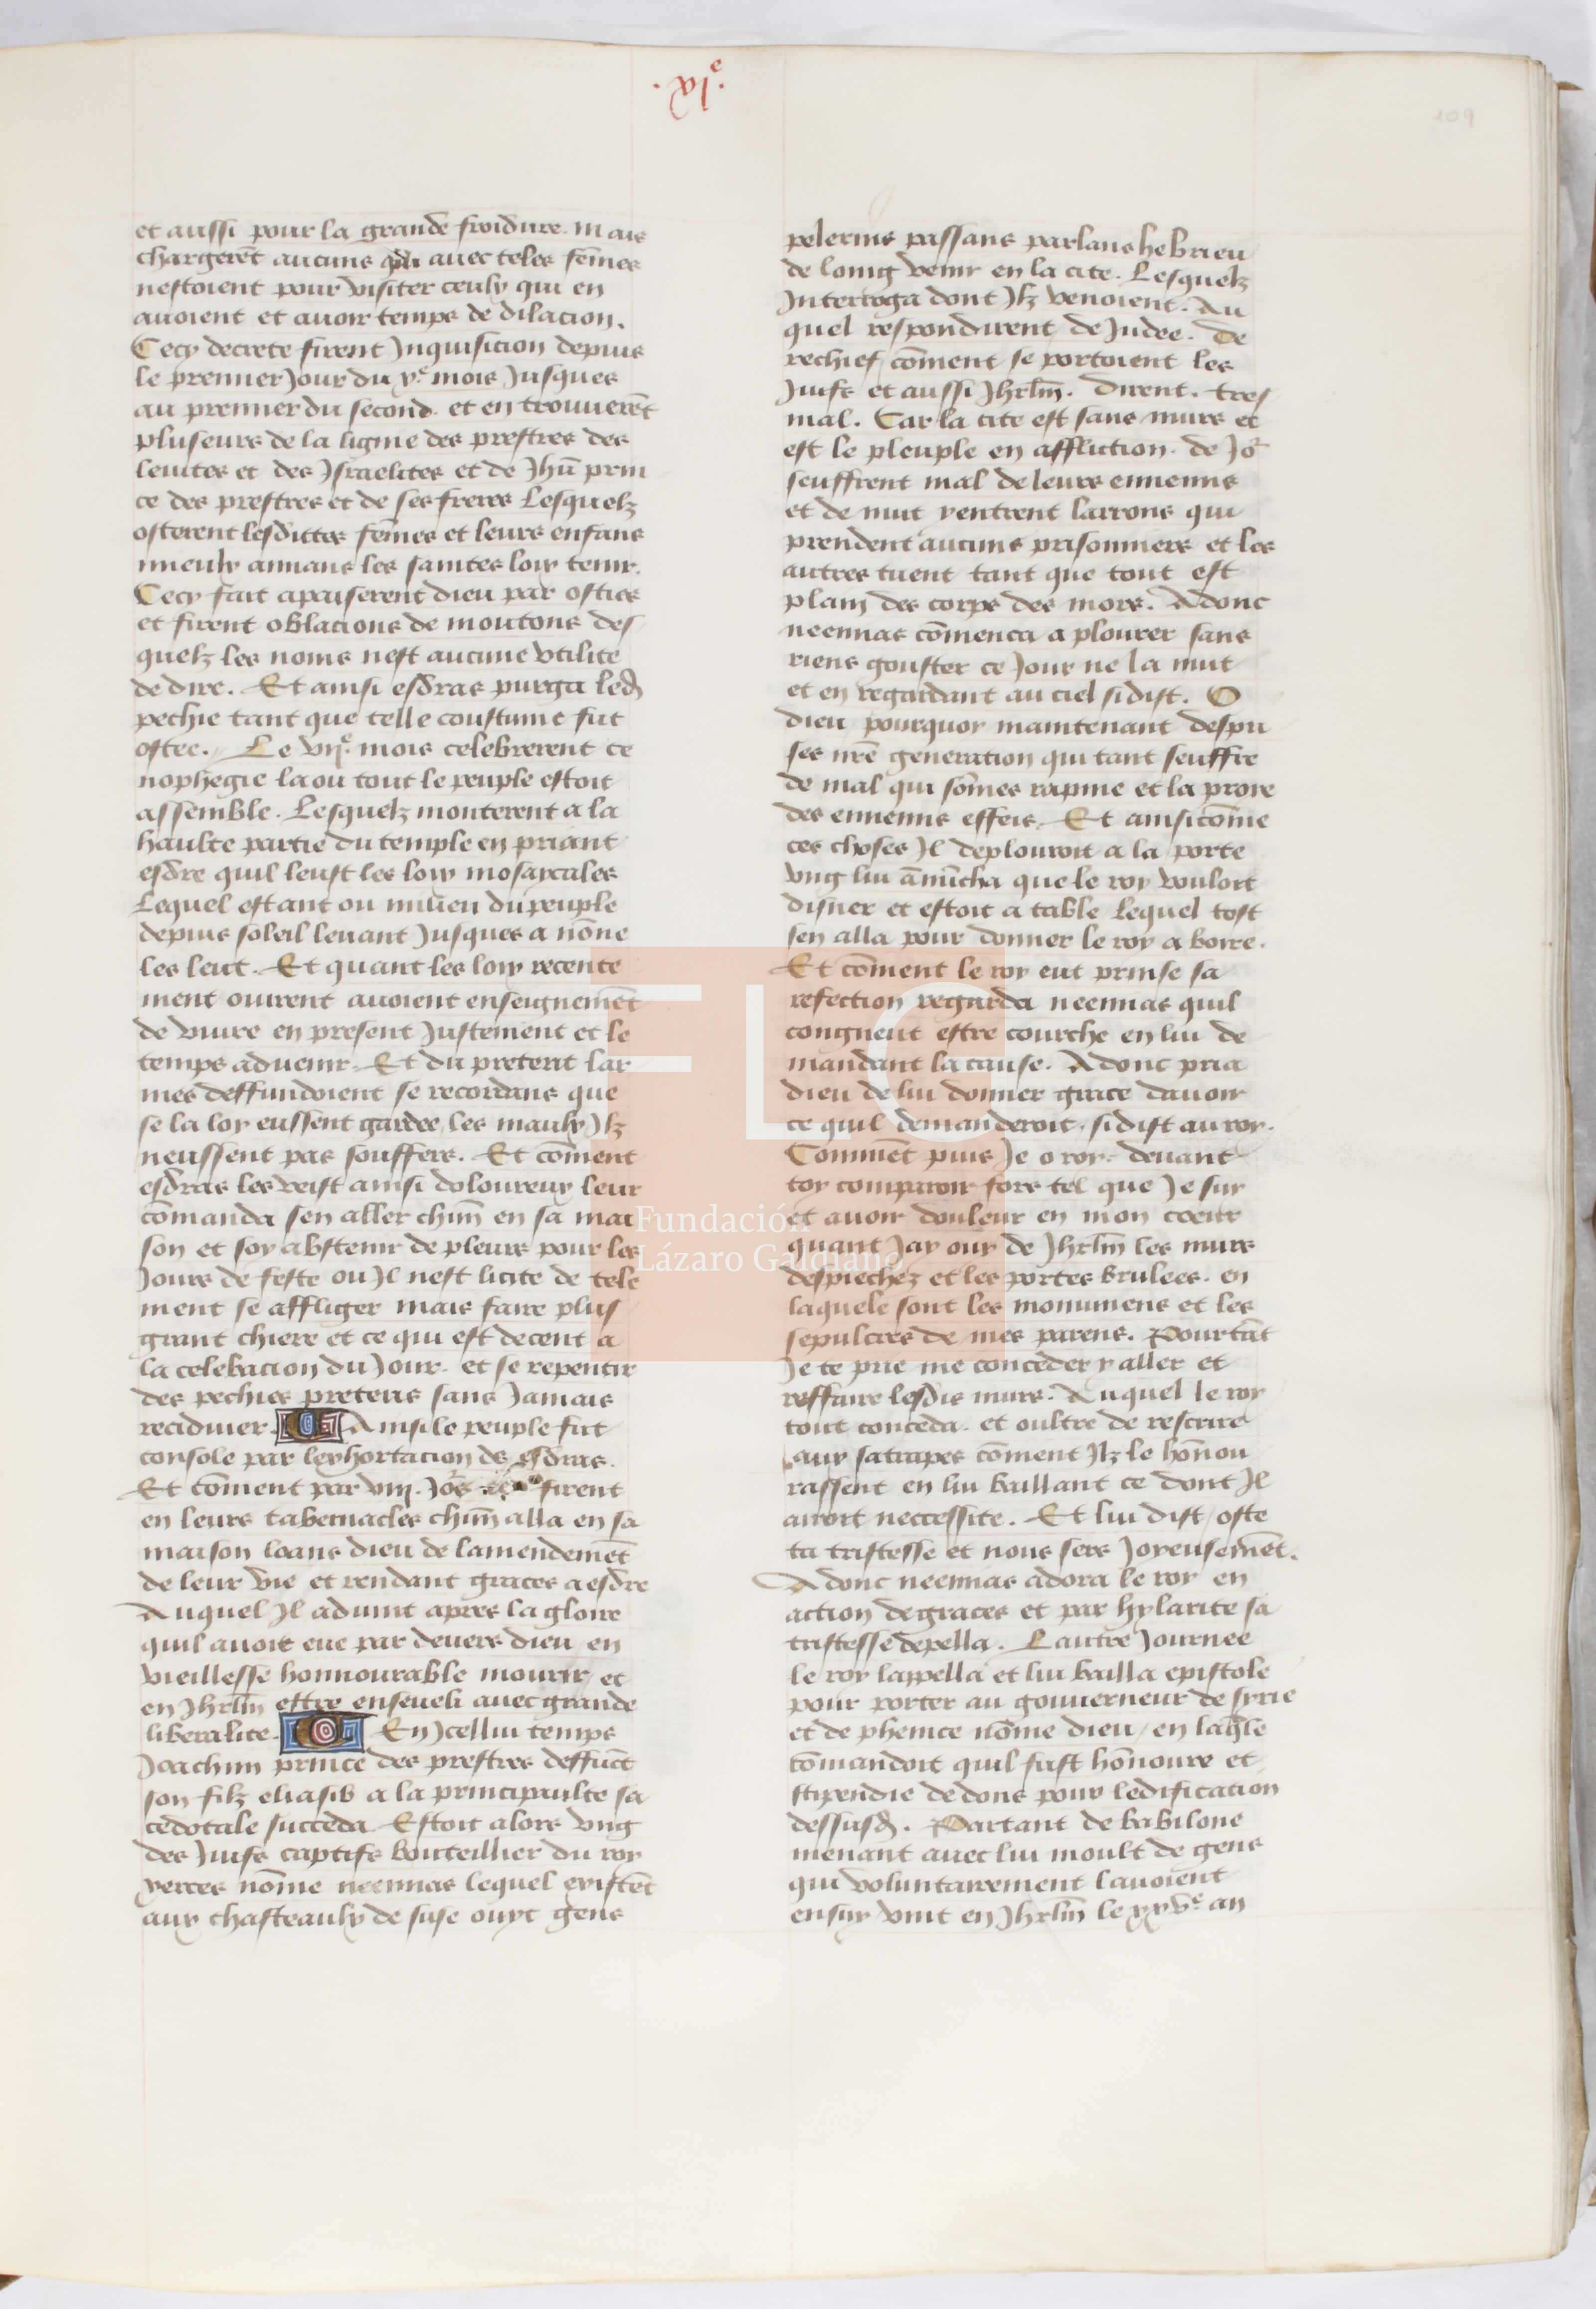 .xi.e
109
et aussi pour la grande froidure. Mais
chargerēt aucuns q̄ auec teles fēmes
nestoient pour visiter ceulx qui en
auoient et auoir temps de dilacion.
Cecy decrete firent Inquisicion depuis
le premier Jour du xe. mois Jusques
au premier du second. et en trouuerēt
pluseurs de la lignie des prestres des
leuites et des Israelites et de Jhū prin
ce des prestres et de ses freres Lesquelz
osterent lesdittes fēmes et leurs enfans
mieulx amans les saintes loix tenir.
Cecy fait apaiserent dieu par osties
et firent oblacions de moutons des
quelz les noms nest aucune vtilite
de dire. Et ainsi esdras purga led̄
pechie tant que telle coustume fut
ostee. Le viie. mois celebrerent ce
nophegie la ou tout le peuple estoit
assemble. Lesquelz monterent a la
haulte partie du temple en priant
esdre quil leust les loix mosaycales
Lequel estant ou milieu du peuple
depuis soleil leuant Jusques a nōne
les leut. Et quant les loix recente
ment ouirent auoient enseignemēt
de viure en present Justement et le
temps aduenir. Et du preterit lar
mes deffundoient se recordans que
se la loy eussent gardee les maulx Ilz
neussent pas souffers. Et cōment
esdras les veist ainsi doloureux leur
cōmanda sen aller chūn en sa mai
son et soy abstenir de pleurs pour les
Jours de feste ou Il nest licite de tele
ment se affliger mais faire plus
grant chiere et ce qui est decent a
la celebacion du Jour. et se repentir
des pechies preteris sans Jamais
recidiuer. Ainsi le peuple fut
console par lexhortacion de esdras.
Et cōment par viii. Jōs firent
en leurs tabernacles chūn alla en sa
maison loans dieu de lamendemēt
de leur vie et rendant graces a esdre
Auquel Il aduint apres la gloire
quil auoit eue par deuers dieu en
vieillesse honnourable mourir et
en Jhrlm̄ estre enseueli auec grande
liberalite. En Icellui temps
Joachim prince des prestres deffūct
son filz eliasib a la principaulte sa
cedotale succeda Estoit alors vng
des Juifs captifs bouteillier du roy
xerces nōme neemias lequel existēt
aux chasteaulx de suse ouyt gens
pelerins passans parlans hebrieu
de loing venir en la cite. Lesquelz
Interroga dont Ilz venoient. Au
quel respondirent de Judee. De
rechief cōment se portoient les
Juifs et aussi Jhrlm̄. Dirent. tres
mal. Car la cite est sans murs et
est le pleuple en affliction. de Jō
seuffrent mal de leurs ennemis
et de nuit yentrent larrons qui
prendent aucuns prisonniers et les
autres tuent tant que tout est
plain des corps des mors. Adonc
neemias cōmenca a plourer sans
riens gouster ce Jour ne la nuit
et en regardant au ciel si dist. O
dieu pourquoy maintenant despri
ses nr̄e generation qui tant seuffre
de mal qui sōmes rapine et la proie
des ennemis effeis. Et ainsi cōme
ces choses Il deplouroit a la porte
vng lui ānūcha que le roy vouloit
disner et estoit a table Lequel tost
sen alla pour donner le roy a boire.
Et cōment le roy eut prinse sa
refection regarda neemias quil
congneut estre courche en lui de
mandant la cause. Adonc pria
dieu de lui donner grace dauoir
ce quil demanderoit. si dist au roy.
Commēt puis Je o roy. deuant
toy comparoir fors tel que Je suy
et auoir douleur en mon coeur
quant Jay ouy de Jhrlm̄ les murs
despiechez et les portes brulees. en
laquele sont les monumens et les
sepulcres de mes parens. Pourtāt
Je te prie me conceder y aller et
reffaire lesdis murs. Auquel le roy
tout conceda. et oultre de rescrire
aux satrapes cōment Ilz le hōnou
rassent en lui baillant ce dont Il
auroit neccessite. Et lui dist / oste
ta tristesse et nous sers Joyeusemēt.
Adonc neemias adora le roy en
action de graces et par hylarite sa
tristesse depella. Lautre Journee
le roy lappella et lui bailla epistole
pour porter au gouuerneur de syrie
et de phenice nōme dieu / en laq̄le
cōmandoit quil fust hōnoure et
stipendie de dons pour ledification
dessusd̄. Partant de babilone
menant auec lui moult de gens
qui voluntairement lauoient
ensuy vint en Jhrlm̄ le xxve. an
FLG
Fundación
Lázaro Galdiano